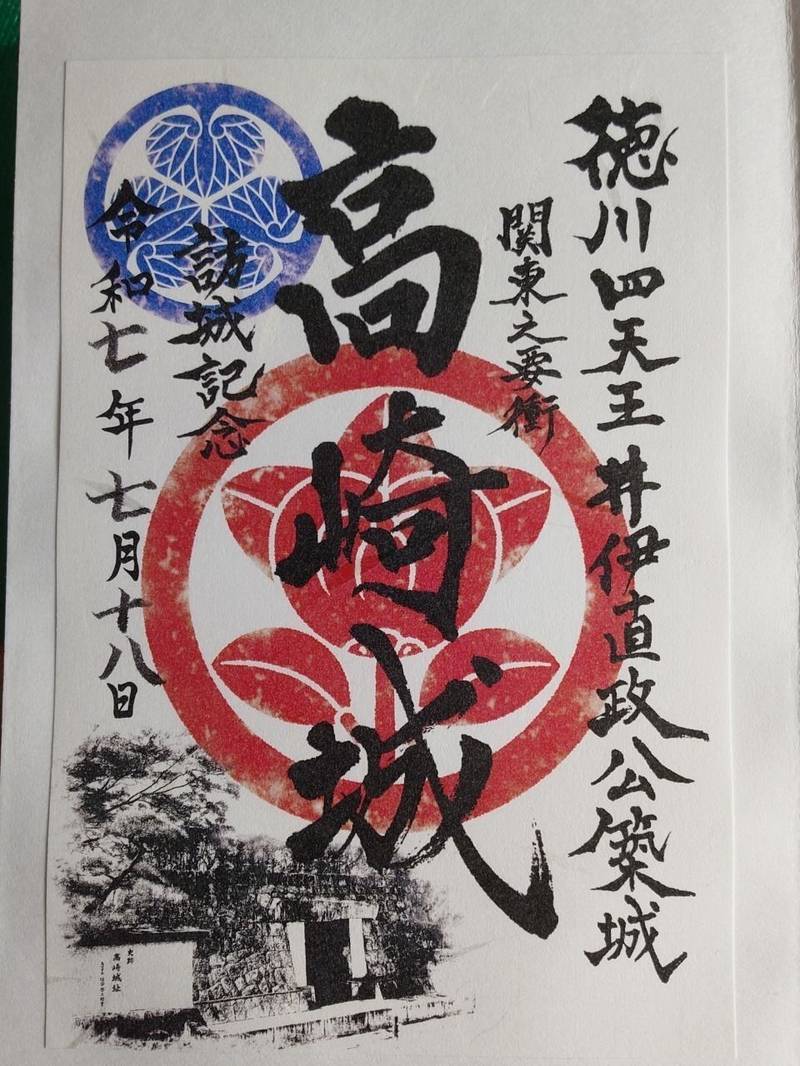 徳川四天王 井伊直政公築城
関東之要衝
高崎城
訪城記念
令和七年七月十八日
史跡
高崎城址